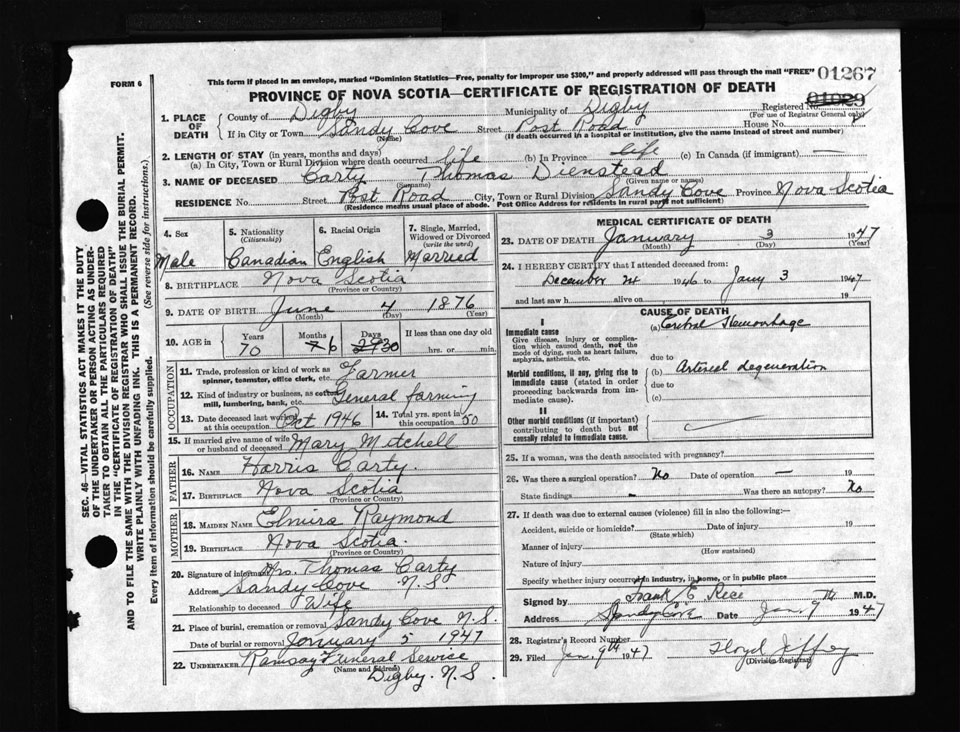 This form if placed in an envelope, marked "Dominion Statistics—Free, penalty for improper use $300," and properly addressed will pass through the mail "FREE" 01267
FORM 6
PROVINCE OF NOVA SCOTIA—CERTIFICATE OF REGISTRATION OF DEATH
1. PLACE OF DEATH County of Digby Municipality of Digby Registered No. 01029
(For use of Registrar General only)
If in City or Town Sandy Cove Street Post Road House No.
(Name) (If death occurred in a hospital or institution, give the name instead of street and number)
2. LENGTH OF STAY (in years, months and days)
(a) In City, Town or Rural Division where death occurred life (b) In Province life (c) In Canada (if immigrant) —
3. NAME OF DECEASED Carty Thomas Dienstead
(Surname) (Given name or names)
RESIDENCE No. Street Post Road City, Town or Rural Division Sandy Cove Province Nova Scotia
(Residence means usual place of abode. Post Office Address for residents in rural parts not sufficient)
4. Sex Male
5. Nationality (Citizenship) Canadian
6. Racial Origin English
7. Single, Married, Widowed or Divorced (write the word) Married
8. BIRTHPLACE Nova Scotia
(Province or Country)
9. DATE OF BIRTH June 4 1876
(Month) (Day) (Year)
10. AGE in Years 70 Months 7 6 Days 29 30 If less than one day old hrs. or min.
OCCUPATION
11. Trade, profession or kind of work as spinner, teamster, office clerk, etc. Farmer
12. Kind of industry or business, as cotton mill, lumbering, bank, etc. General farming
13. Date deceased last worked at this occupation Oct 1946 14. Total yrs. spent in this occupation 50
15. If married give name of wife or husband of deceased Mary Mitchell
FATHER
16. NAME Harris Carty.
17. BIRTHPLACE Nova Scotia
(Province or Country)
MOTHER
18. MAIDEN NAME Elmira Raymond
19. BIRTHPLACE Nova Scotia.
(Province or Country)
20. Signature of informant Mrs. Thomas Carty
Address Sandy Cove N.S
Relationship to deceased Wife
21. Place of burial, cremation or removal Sandy Cove N.S.
Date of burial or removal January 5 1947
22. UNDERTAKER Ramsay Funeral Service
(Name and Address) Digby. N.S.
MEDICAL CERTIFICATE OF DEATH
23. DATE OF DEATH January 3 1947
(Month) (Day) (Year)
24. I HEREBY CERTIFY that I attended deceased from:
December 24 1946 to Jany 3 1947
and last saw h alive on 19
CAUSE OF DEATH
I
Immediate cause
Give disease, injury or complication which caused death, not the mode of dying, such as heart failure, asphyxia, asthenia, etc.
(a) Cerebral Hemorrhage
due to
Morbid conditions, if any, giving rise to immediate cause (stated in order proceeding backwards from immediate cause).
(b) Arterial degeneration
due to
(c)
II
Other morbid conditions (if important) contributing to death but not causally related to immediate cause.
25. If a woman, was the death associated with pregnancy?
26. Was there a surgical operation? No Date of operation — 19
State findings - Was there an autopsy? No
27. If death was due to external causes (violence) fill in also the following:—
Accident, suicide or homicide? Date of injury 19
(State which)
Manner of injury
(How sustained)
Nature of injury
Specify whether injury occurred in industry, in home, or in public place
Signed by Frank E Rice M.D.
Address Sandy Cove Date Jan. 9th 1947
28. Registrar's Record Number
29. Filed Jan. 9th 1947 Floyd Jeffrey
(Division Registrar)
SEC. 46—VITAL STATISTICS ACT MAKES IT THE DUTY
OF THE UNDERTAKER OR PERSON ACTING AS UNDERTAKER TO OBTAIN ALL THE PARTICULARS REQUIRED
IN THE "CERTIFICATE OF REGISTRATION OF DEATH"
AND TO FILE THE SAME WITH THE DIVISION REGISTRAR WHO SHALL ISSUE THE BURIAL PERMIT.
WRITE PLAINLY WITH UNFADING INK. THIS IS A PERMANENT RECORD.
Every item of information should be carefully supplied. (See reverse side for instructions.)